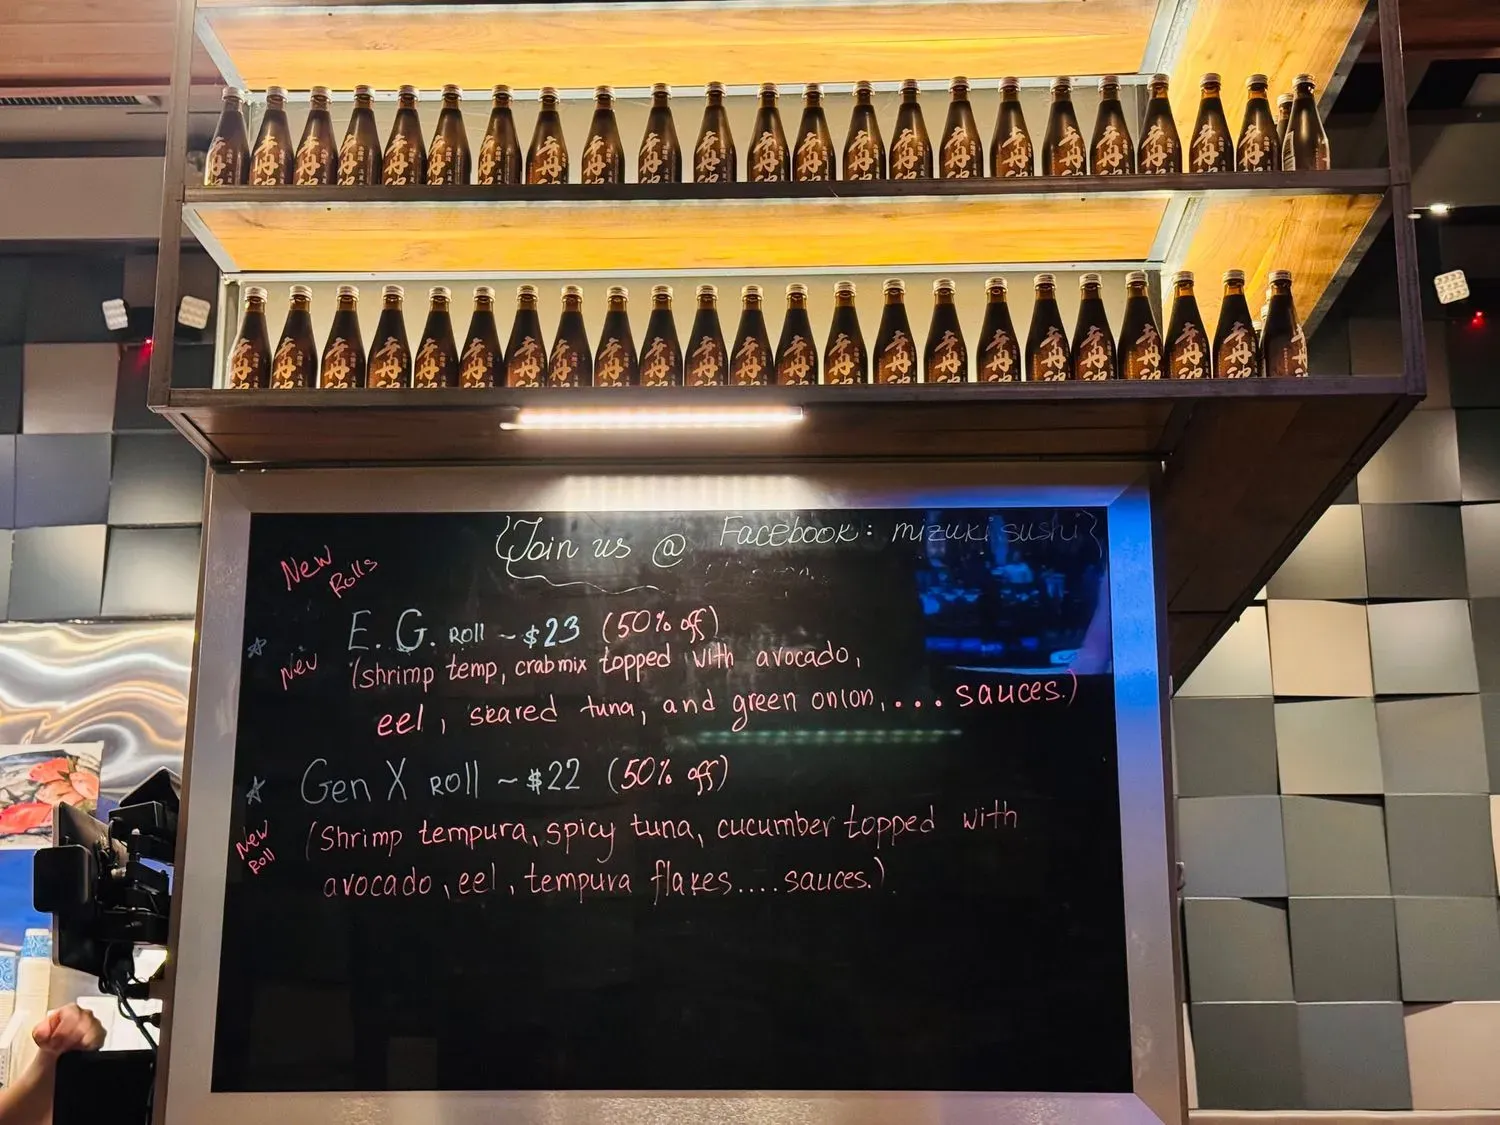 辛丹波
{Join us @ Facebook: mizuki sushi}
New Rolls
☆ E. G. Roll ~ $23 (50% off)
New (shrimp temp, crab mix topped with avocado,
eel, seared tuna, and green onion, ... sauces.)
☆ Gen X Roll ~ $22 (50% off)
New Roll (Shrimp tempura, spicy tuna, cucumber topped with
avocado, eel, tempura flakes.... sauces.)